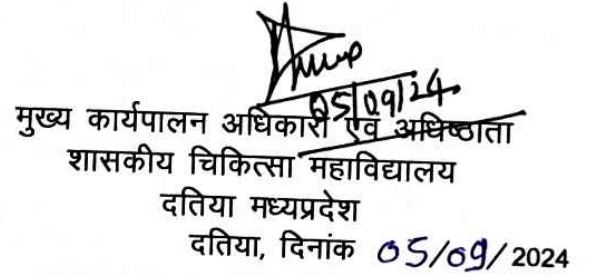 05/09/24
मुख्य कार्यपालन अधिकारी एवं अधिष्ठाता
शासकीय चिकित्सा महाविद्यालय
दतिया मध्यप्रदेश
दतिया, दिनांक 05/09/2024